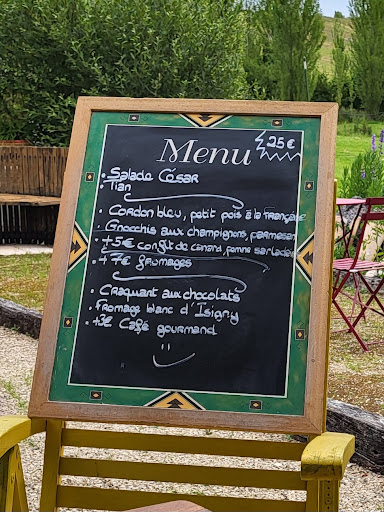 Menu 25€
. Salade César
. Tian
. Cordon bleu, petit pois à la française
. Gnocchis aux champignons, parmesan
. +5€ confit de canard, pomme sarladaise
. +7€ fromages
. Craquant aux chocolats
. Fromage blanc d'Isigny
. +3€ Café gourmand